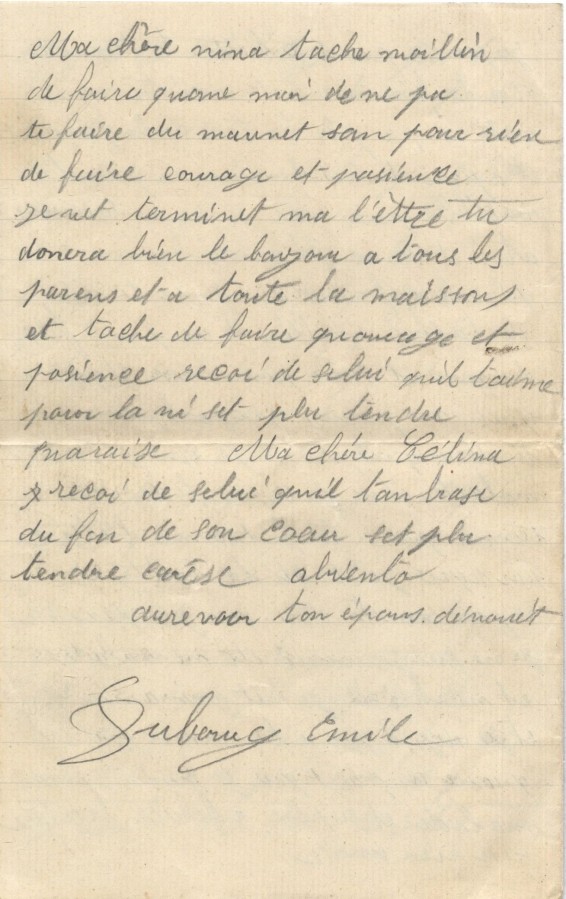 Ma chère nina tache moillin
de faire quome moi de ne pa
te faire du mauvet san pour rien
de faire courage et pasience
je vet terminet ma l'èttre tu
donera bien le bonjour a tous les
parens et a toute la maisson
et tache de faire quourage et
pasience recoi de selui quil t'aime
pour la vi set plu tendre
quaraise Ma chére Célina
recoi de selui quil tanbrase
du fon de son coaur set plu
tendre carèse abiento
aurevoir ton épous dévouét
Emile